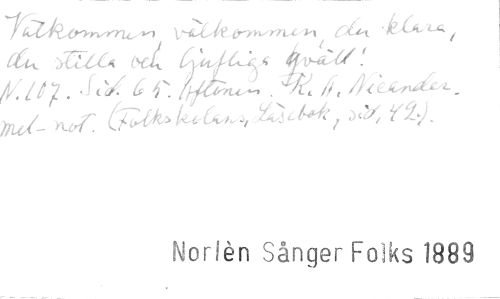 Välkommen, välkommen, du klara,
du stilla och ljufliga qväll!
N. 107. Sid. 65. Aftonen. K. A. Nicander.
mel-not. (Folkskolans Läsebok, sid, 42.).
Norlèn Sånger Folks 1889